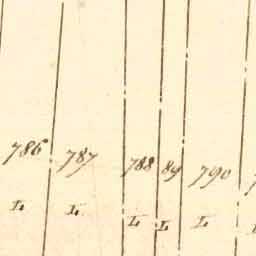 786 787 788 89 790
L L L L L